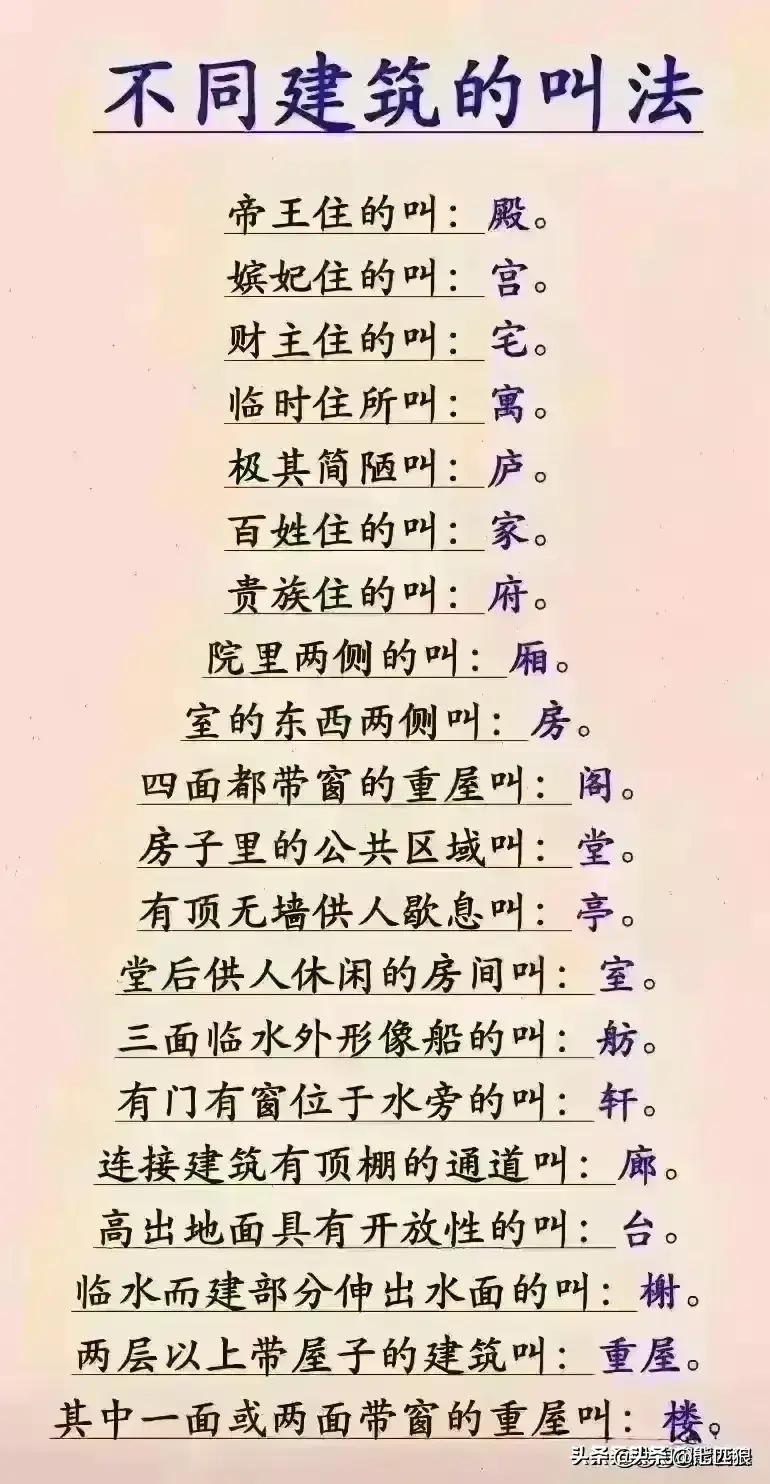 不同建筑的叫法
帝王住的叫：殿。
嫔妃住的叫：宫。
财主住的叫：宅。
临时住所叫：寓。
极其简陋叫：庐。
百姓住的叫：家。
贵族住的叫：府。
院里两侧的叫：厢。
室的东西两侧叫：房。
四面都带窗的重屋叫：阁。
房子里的公共区域叫：堂。
有顶无墙供人歇息叫：亭。
堂后供人休闲的房间叫：室。
三面临水外形像船的叫：舫。
有门有窗位于水旁的叫：轩。
连接建筑有顶棚的通道叫：廊。
高出地面具有开放性的叫：台。
临水而建部分伸出水面的叫：榭。
两层以上带屋子的建筑叫：重屋。
其中一面或两面带窗的重屋叫：楼。